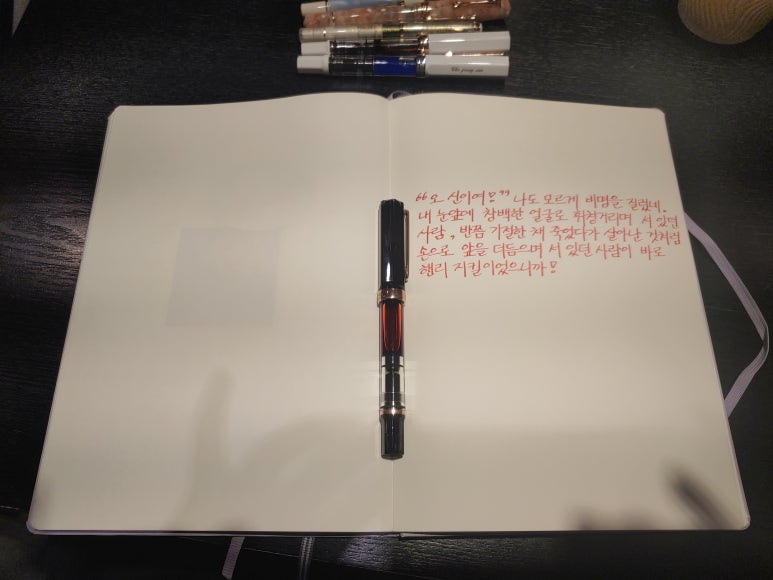 “오 신이여!” 나도 모르게 비명을 질렀네.
내 눈앞에 창백한 얼굴로 휘청거리며 서 있던
사람, 반쯤 기절한 채 죽었다가 살아난 것처럼
손으로 앞을 더듬으며 서 있던 사람이 바로
헨리 지킬이었으니까!